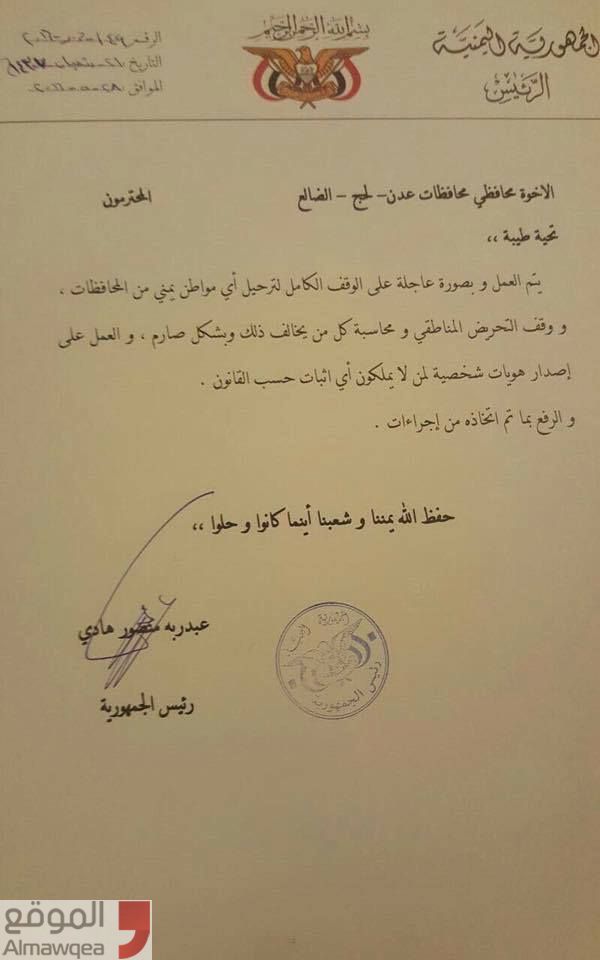 بسم الله الرحمن الرحيم
الجمهورية اليمنية
الرئيس
الرقم
التاريخ
الموافق
الاخوة محافظي محافظات عدن - لحج - الضالع المحترمون
تحية طيبة ،،
يتم العمل و بصورة عاجلة على الوقف الكامل لترحيل أي مواطن يمني من المحافظات ،
و وقف التحريض المناطقي و محاسبة كل من يخالف ذلك وبشكل صارم ، و العمل على
إصدار هويات شخصية لمن لا يملكون أي اثبات حسب القانون .
و الرفع بما تم اتخاذه من إجراءات .
حفظ الله يمننا و شعبنا أينما كانوا و حلوا ،،
عبدربه منصور هادي
رئيس الجمهورية
رئيس الجمهورية
الموقع
Almawqea